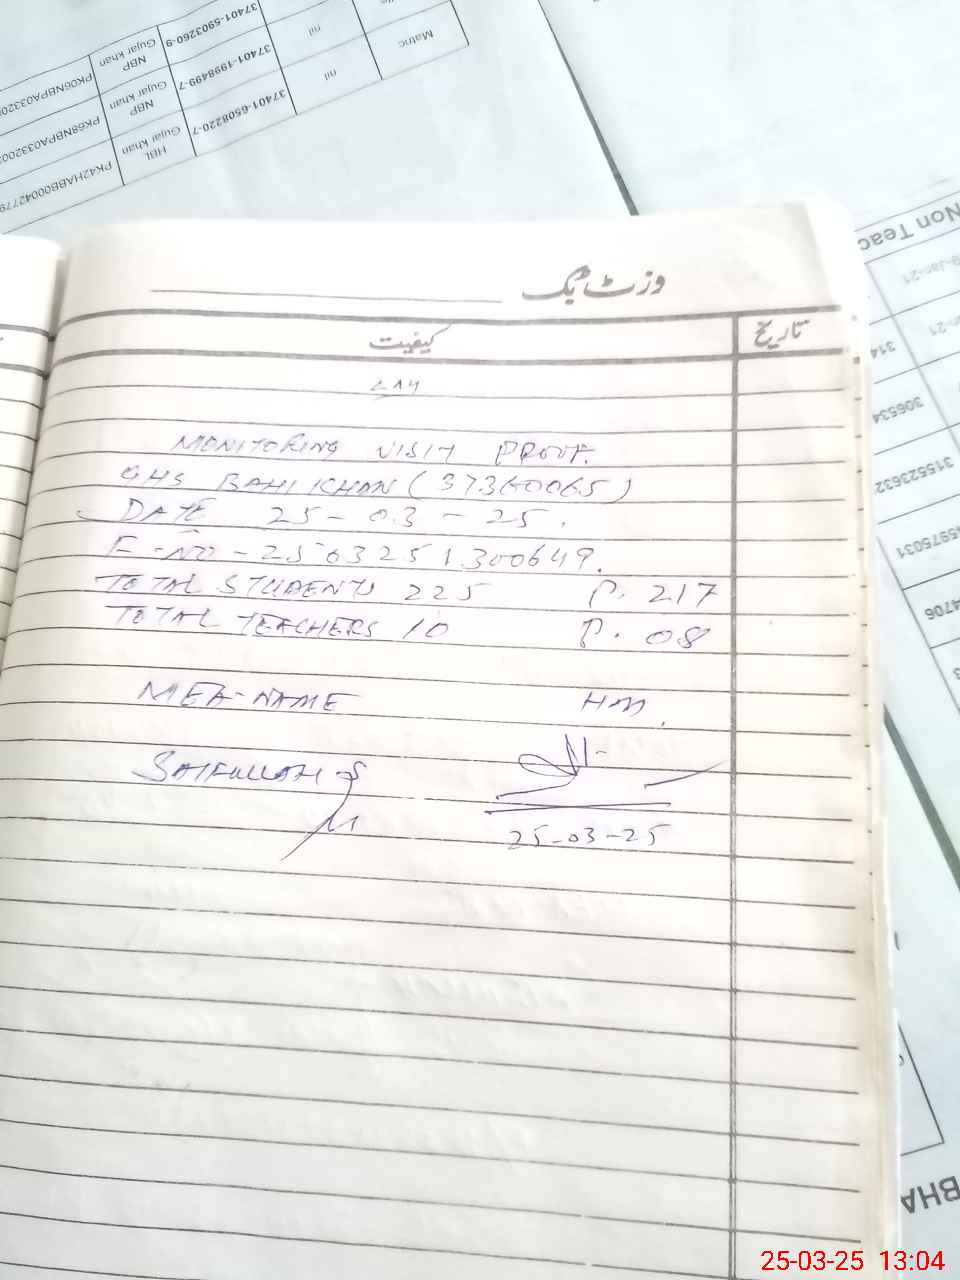 Matric
nil
nil
37401-5903260-9
37401-1998499-7
37401-6508220-7
NBP
Gujar khan
NBP
Gujar khan
HBL
Gujar khan
Non Teac
314
306534
315523632
45975031
4706
BHA
وزٹ بک
کیفیت
تاریخ
MONITORING VISIT PROOF.
GHS BAHI KHAN (37360065)
DATE 25-03-25.
F-NO-2503251300649.
TOTAL STUDENTS 225 P. 217
TOTAL TEACHERS 10 P. 08
MEA-NAME HM.
SAIFULLAH-S
25-03-25
25-03-25 13:04